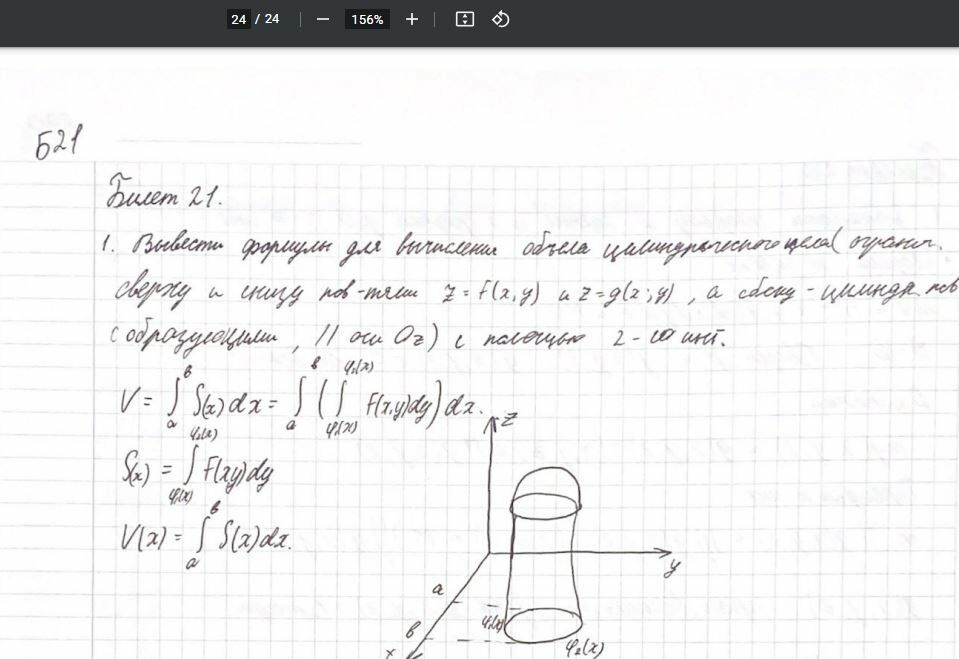 24 / 24 — 156% +
Б21
Билет 21.
1. Вывести формулы для вычисления объема цилиндрического тела (огранич.
сверху и снизу пов-тями z = f(x,y) и z = g(x;y), а сбоку - цилиндр. пов
с образующими, // оси Oz) с помощью 2-ого инт.
V = ∫ₐᵇ S(x) dx = ∫ₐᵇ ( ∫_{φ₁(x)}^{φ₂(x)} F(x,y) dy ) dx.
S(x) = ∫_{φ₁(x)}^{φ₂(x)} F(xy) dy
V(x) = ∫ₐᵇ S(x) dx.
z
y
a
φ₁(x)
в
φ₂(x)
x